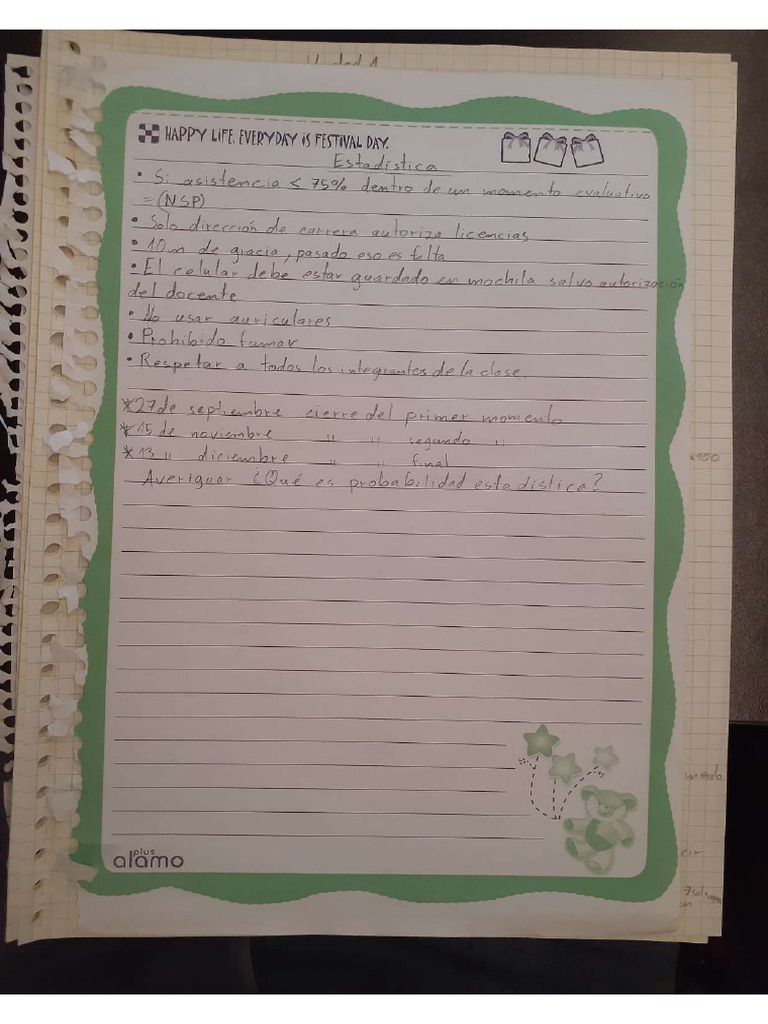 Unidad 1
HAPPY LIFE. EVERYDAY IS FESTIVAL DAY.
Estadística
• Si asistencia < 75% dentro de un momento evaluativo
= (NSP)
• Solo dirección de carrera autoriza licencias
• 10m de gracia, pasado eso es falta
• El celular debe estar guardado en mochila salvo autorización
del docente
• No usar auriculares
• Prohibido fumar
• Respetar a todos los integrantes de la clase.
*27 de septiembre cierre del primer momento
*15 de noviembre " " segundo "
*13 " diciembre " " final
Averiguar ¿Qué es probabilidad estadística?
plus
alamo